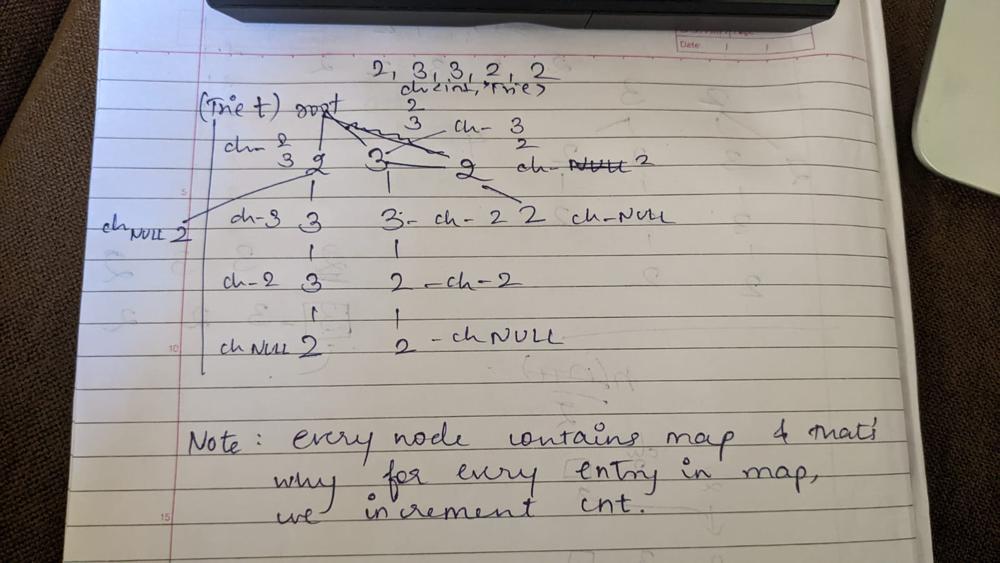 Date
2, 3, 3, 2, 2
ch<int, Trie>
(Trie t) root 2
3 ch- 3
ch- 2 2
3 2 3 2 ch- NULL 2
ch NULL 2 ch-3 3 3 - ch - 2 2 ch-NULL
5
ch-2 3 2 -ch-2
10 ch NULL 2 2 - ch NULL
Note : every node contains map & that's
why for every entry in map,
we increment cnt.
15